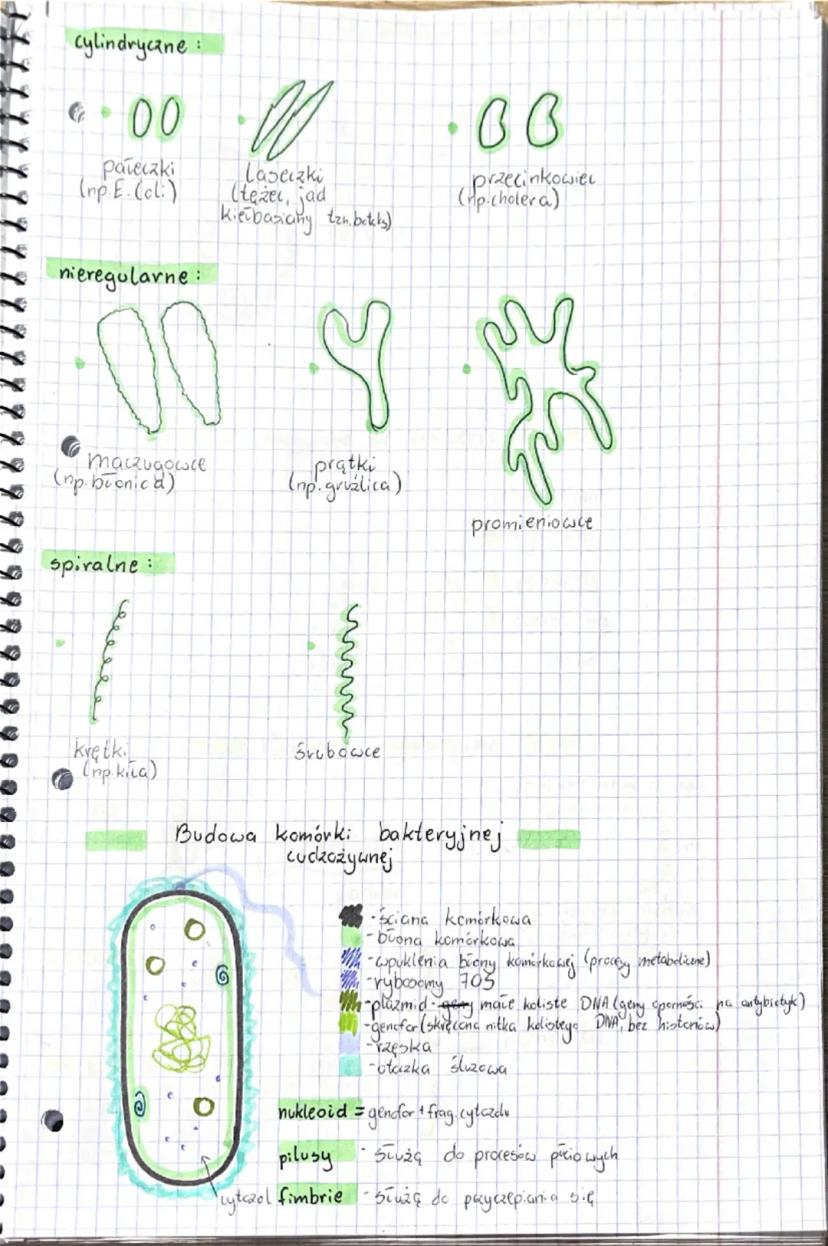 cylindryczne:
pałeczki
(np. E. Coli)
laseczki
(tężec, jad
kiełbasiany tzn. botuls)
przecinkowiec
(np. cholera)
nieregularne:
maczugowce
(np. błonica)
prątki
(np. gruźlica)
promieniowce
spiralne:
krętki
(np. kiła)
śrubowce
Budowa komórki bakteryjnej
cudzożywnej
- ściana komórkowa
- błona komórkowa
- wpuklenia błony komórkowej (procesy metaboliczne)
- rybosomy 70S
- plazmid - geny małe koliste DNA (geny oporności na antybiotyk)
- genofor (skręcona nitka kolistego DNA, bez histonów)
- rzęska
- otoczka śluzowa
nukleoid = genofor + frag. cytozolu
pilusy - służą do procesów płciowych
cytozol
fimbrie - służą do przyczepiania się